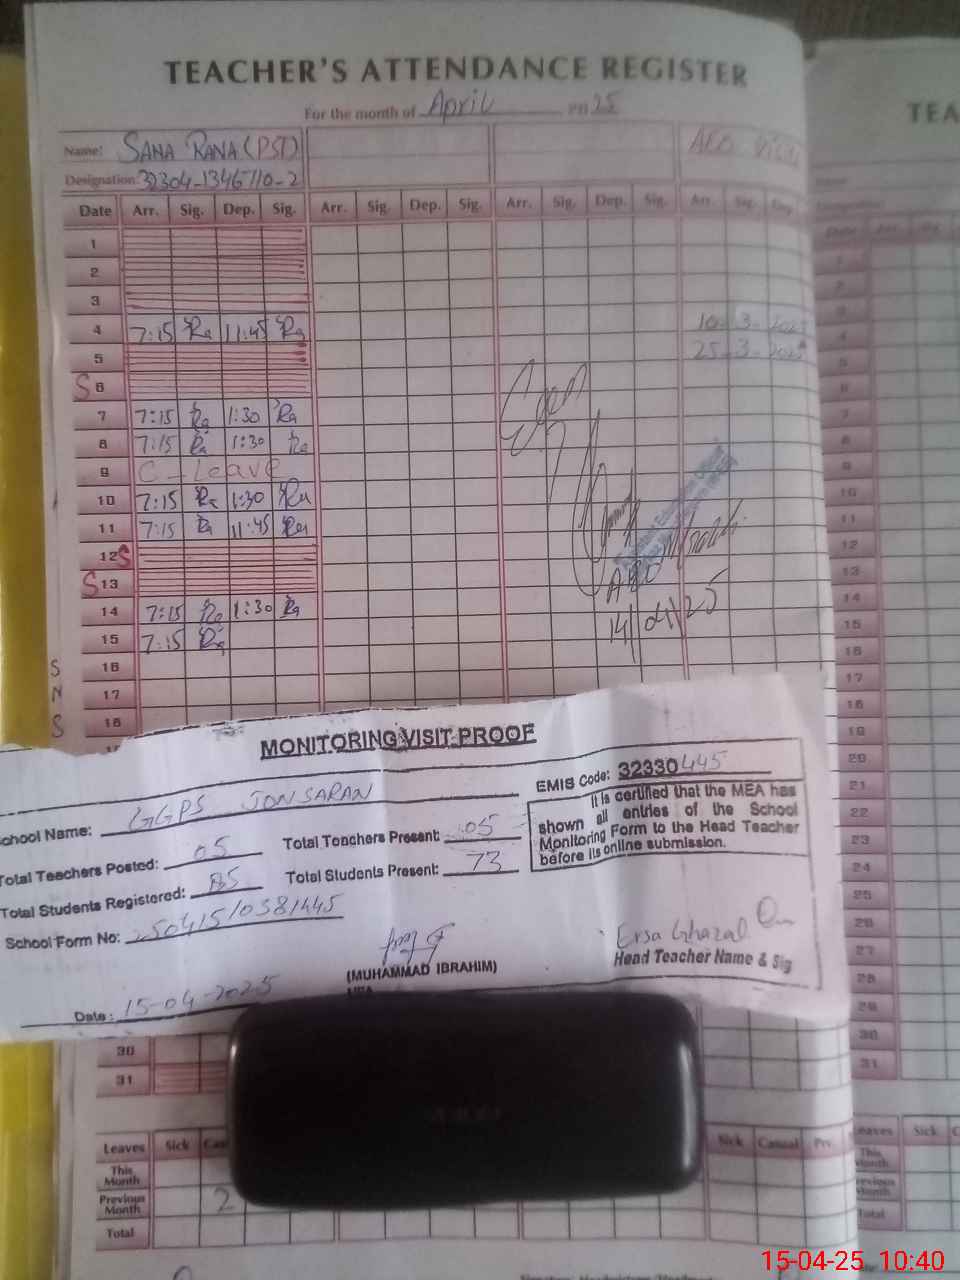 TEACHER'S ATTENDANCE REGISTER
For the month of April 2025
Name: SANA RANA (PST)
Designation: 32304-1346710-2
AEO Visit
Date Arr. Sig. Dep. Sig. Arr. Sig. Dep. Sig. Arr. Sig. Dep. Sig. Arr. Sig. Dep
1
2
3
4 7:15 Ra 11:45 Ra
10-3-2025
5
25-3-2025
S 6
7 7:15 Ra 1:30 Ra
8 7:15 Ra 1:30 Ra
9 C-Leave
10 7:15 Ra 1:30 Ra
11 7:15 Ra 11:45 Ra
12 S
S 13
AEO
14 7:15 Ra 1:30 Ra
14/04/25
15 7:15 Ra
S 16
N 17
S 18
MONITORING VISIT PROOF
School Name: GGPS JON SARAN
EMIS Code: 32330445
Total Teachers Posted: 05
Total Teachers Present: 05
Total Students Registered: 85
Total Students Present: 73
School Form No: 250415/0381445
It is certified that the MEA has
shown all entries of the School
Monitoring Form to the Head Teacher
before its online submission.
(MUHAMMAD IBRAHIM)
MEA
Ersa Ghazal
Head Teacher Name & Sig
Date: 15-04-2025
30
31
Leaves Sick Cas
This Month
Previous Month 2
Total
Sick Casual Prv.
TEA
Date
1
2
3
4
5
6
7
8
9
10
11
12
13
14
15
16
17
18
19
20
21
22
23
24
25
26
27
28
29
30
31
Leaves Sick C
This Month
Previous Month
Total
15-04-25 10:40